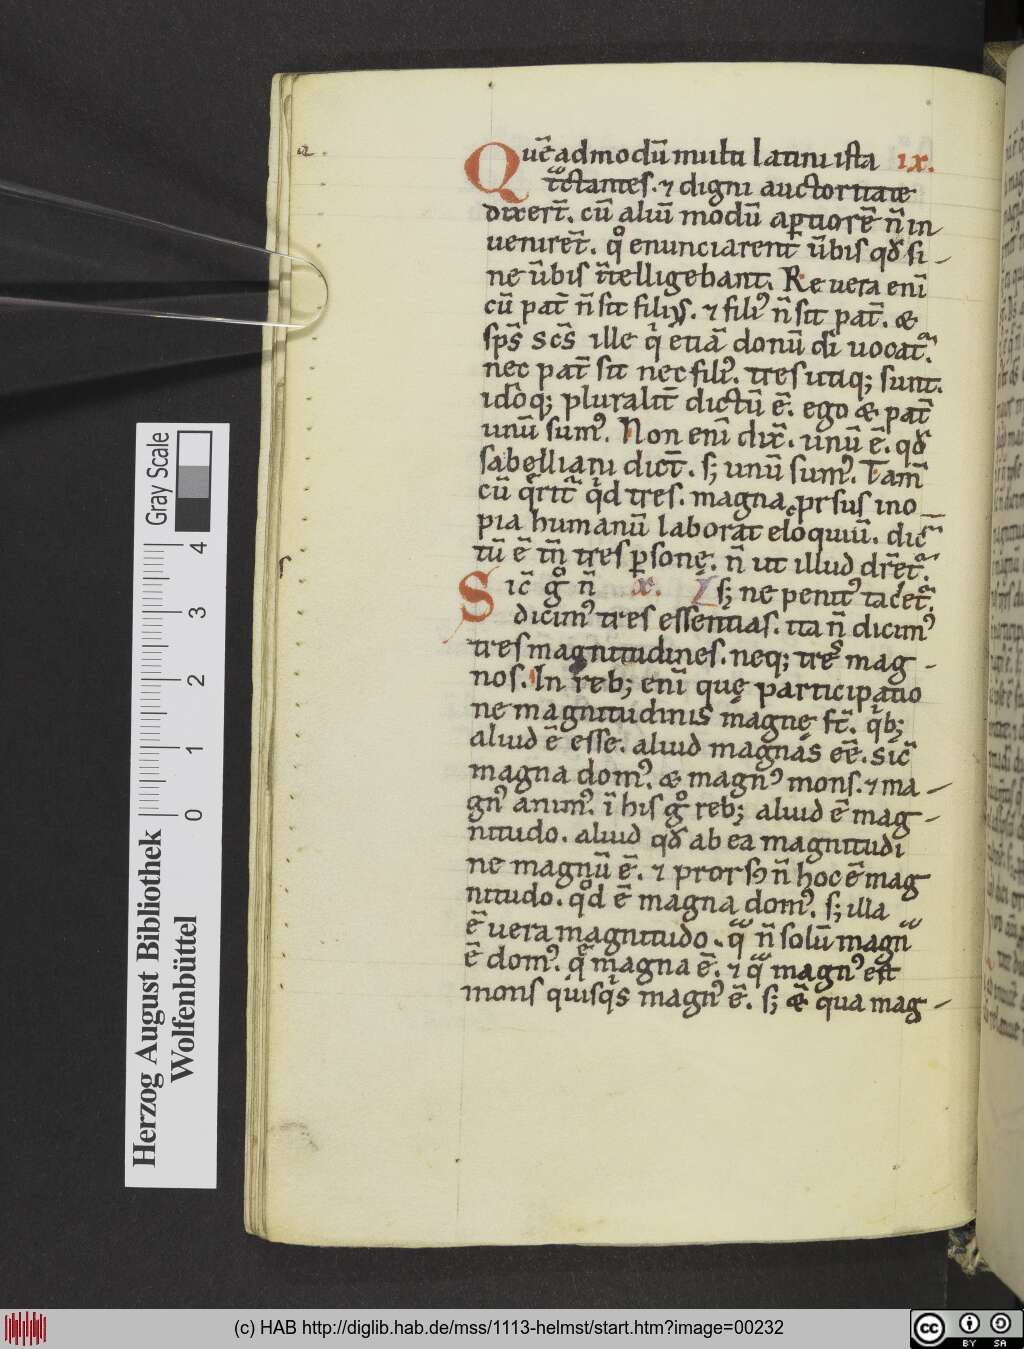 Quēadmodū multi latini ista ix.
t̄ctantes. ⁊ digni auctoritate
dixer̄t. cū aliū modū aptiorē n̄ in
venirēt. qͦ enunciarent ūbis qđ si-
ne ūbis īntelligebant. Re vera enī
cū pat̄ n̄ sit filiꝰ. ⁊ filiꝰ n̄ sit pat̄. &
sp̄s scs̄ ille qⁱ etiā donū di vocat̄.
nec pat̄ sit nec filiꝰ. tres itaq; sunt.
idōq; pluralit̄ dictū ē. ego & pat̄
unū sumꝰ. Non enī dix̄. unū ē. qđ
sabelliani dict̄. s; unū sumꝰ. Tam̄
cū qrit̄ qⁱd tres. magna ꝓrsus ino
pia humanū laborat eloquiū. dic
tū ē tn̄ tres ꝑsonę. n̄ ut illud dr̄et̄.
Sic̄ gͦ n̄ x. s; ne penitꝰ tacet̄.
dicimꝰ tres essentias. ita n̄ dicimꝰ
tres magnitudines. neq; tres mag-
nos. In reb; enī quę participatio
ne magnitudinis magnę st̄. qⁱb;
aliud ē esse. aliud magnas eē. sic̄
magna domꝰ. & magnꝰ mons. ⁊ ma-
gnꝰ animꝰ. ī his gͦ reb; aliud ē mag-
nitudo. aliud qđ ab ea magnitudi
ne magnū ē. ⁊ prorsꝰ n̄ hoc ē mag
nitudo. qͦd ē magna domꝰ. s; illa
ē vera magnitudo. qᵃ n̄ solū magnᵃ
ē domꝰ. q̨ magna ē. ⁊ qᵃ magnꝰ est
mons qⁱsqⁱs magnꝰ ē. s; & qua mag-
a.
Herzog August Bibliothek
Wolfenbüttel
Gray Scale
0 1 2 3 4
(c) HAB http://diglib.hab.de/mss/1113-helmst/start.htm?image=00232
cc BY SA